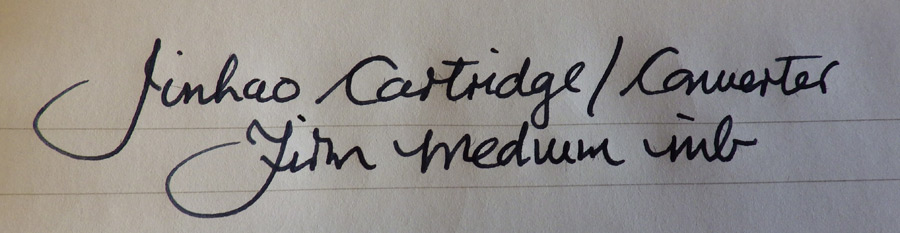 Jinhao Cartridge/Converter
Firm medium nib